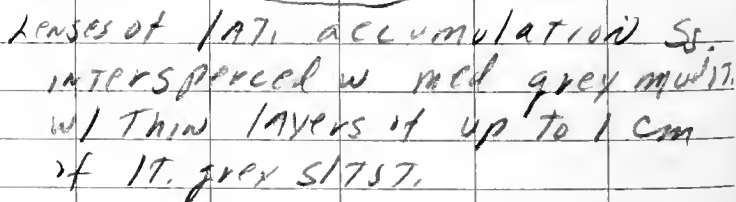 Lenses of lAT. accumulation Ss.
intersperced w med grey mudst.
w/ Thin layers of up to 1 cm
of lT. grey slTsT.